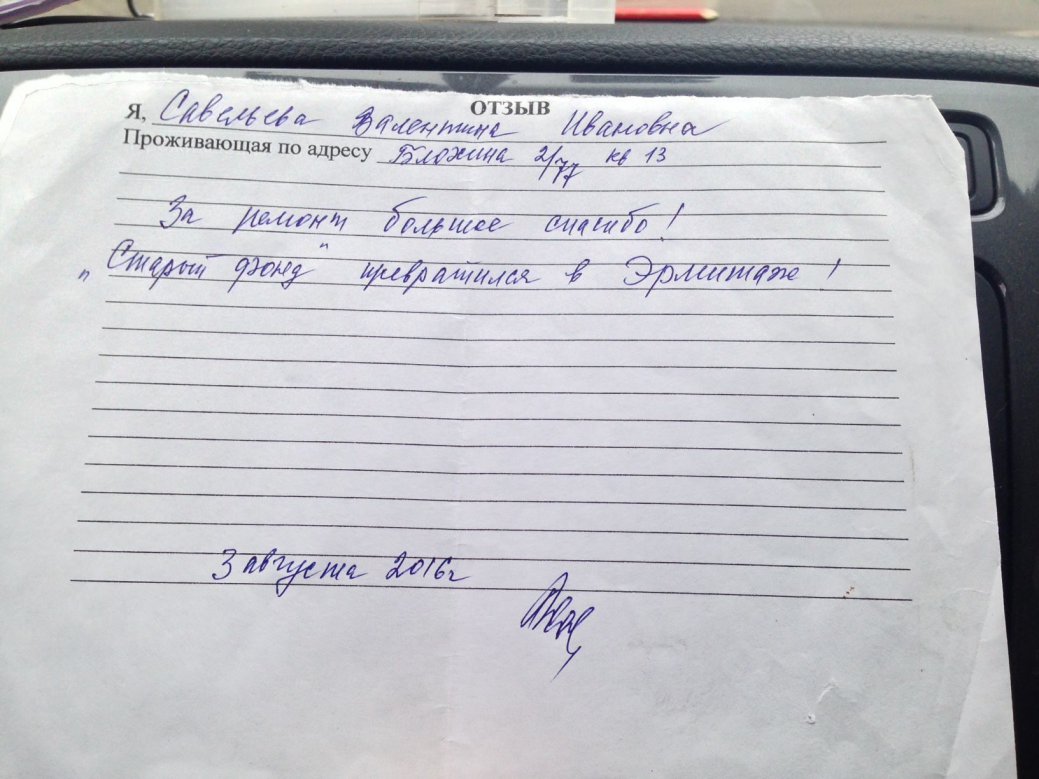 ОТЗЫВ
Я, Савельева Валентина Ивановна
Проживающая по адресу Блохина 2/77 кв 13
За ремонт большое спасибо!
„Старый фонд" превратился в Эрмитаж!
3 августа 2016г